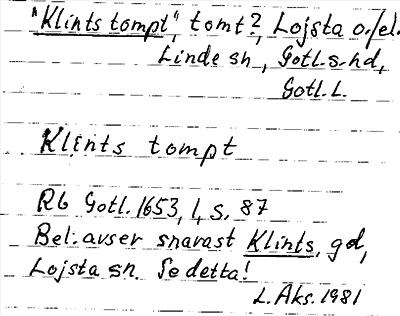 "Klints tompt", tomt?, Lojsta o./el.
Linde sn, Gotl.s.hd,
Gotl.L.
Klints tompt
Rb Gotl. 1653, 1, s. 87
Bel. avser snarast Klints, gd,
Lojsta sn. Se detta!
L.Aks. 1981